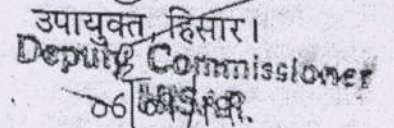 उपायुक्त, हिसार।
Deputy Commissioner
06 HISAR.